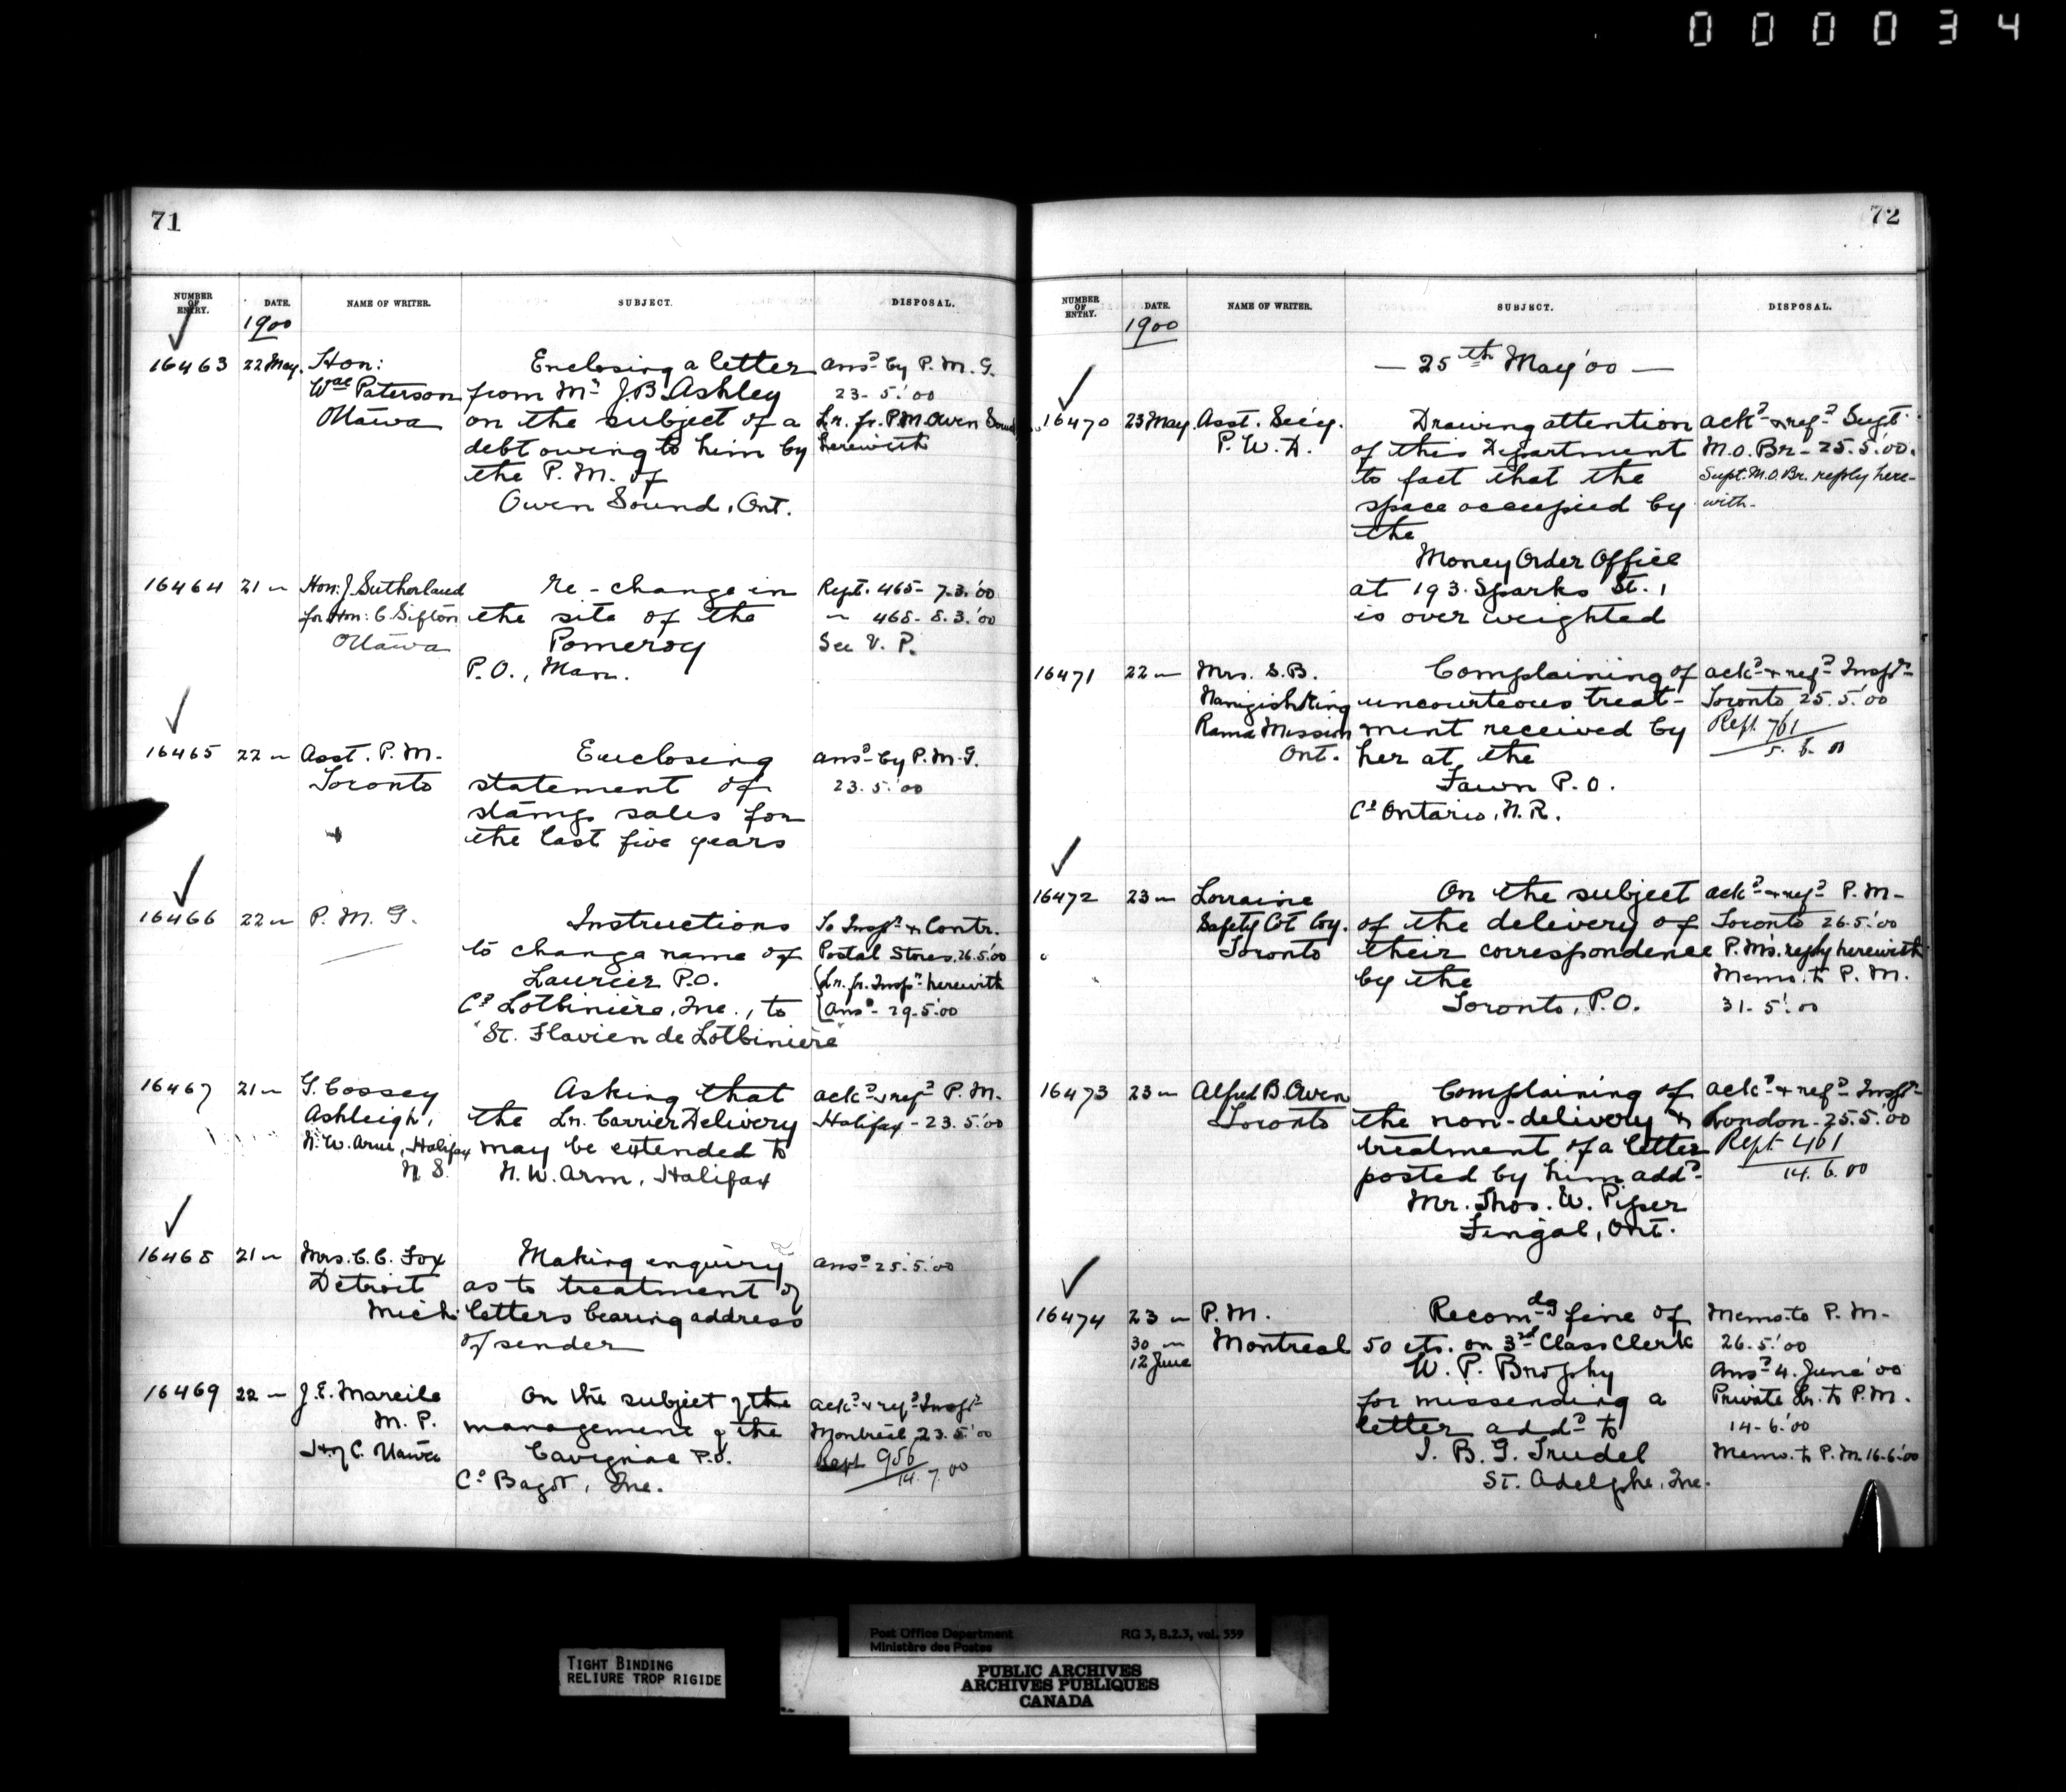 000034
71
NUMBER OF ENTRY. DATE. NAME OF WRITER. SUBJECT. DISPOSAL.
1900
16463 22 May. Hon: Enclosing a letter Ansd by P. M. G.
Wm Paterson from Mr J. B. Ashley 23-5.'00
Ottawa on the subject of a Lr. fr. P.M. Owen Sound
debt owing to him by herewith
the P. M. of
Owen Sound, Ont.
16464 21 " Hon: J. Sutherland re-change in Rept. 465-7.3.'00
for Hon: C. Sifton the site of the " 468-8.3.'00
Ottawa Pomeroy See V. P.
P.O., Man.
16465 22 " Asst. P. M. Enclosing ansd by P. M. G.
Toronto statement of 23.5.'00
stamp sales for
the last five years
16466 22 " P. M. G. Instructions To Inspr & Contr.
to change name of Postal Stores. 26.5.'00
Laurier P.O. Lr. fr. Inspr herewith
Co Lotbinière, Que., to Ansd - 29-5.'00
"St. Flavien de Lotbinière"
16467 21 " G. Cossey Asking that ackd & refd P. M.
Ashleigh, the Lr. Carrier Delivery Halifax - 23.5.'00
N. W. Arm, Halifax may be extended to
N. S. N. W. Arm, Halifax
16468 21 " Mrs. C. C. Fox Making enquiry ansd 25.5.'00
Detroit as to treatment of
Mich: letters bearing address
of sender
16469 22 " J. E. Marcile On the subject of the ackd & refd Inspr
M. P. management of the Montreal 23.5.'00
H. of C. Ottawa Cavignac P.O. Rept 956
Co Bagot, Que. 14.7.00
72
NUMBER OF ENTRY. DATE. NAME OF WRITER. SUBJECT. DISPOSAL.
1900
— 25th May '00 —
16470 23 May. Asst. Sec'y. Drawing attention ackd & refd Supt
P. W. D. of this Department M. O. Br - 25.5.'00.
to fact that the Supt. M. O. Br. reply here-
space occupied by with.
the
Money Order Office
at 193 Sparks St.,
is over weighted
16471 22 " Mrs. S. B. Complaining of ackd & refd Inspr
King uncourteous treat- Toronto 25.5.'00
Rama Mission ment received by Rept. 761
Ont. her at the 5.6.00
Fawn P. O.
Co Ontario, N. R.
16472 23 " Lorraine On the subject ackd & refd P. M.
Safety Co. of the delivery of Toronto 26.5.'00
Toronto their correspondence P. M's. reply herewith
by the Memo. to P. M.
Toronto, P.O. 31-5.'00
16473 23 " Alfred B. Owen Complaining of ackd & refd Inspr
Toronto the non-delivery & London - 25.5.'00
treatment of a letter Rept 461
posted by him addd 14.6.00
Mr. Thos. W. Piper
Fingal, Ont.
16474 23 " P. M. Recomdg fine of Memo. to P. M.
30 " Montreal 50 cts. on 3rd Class Clerk 26.5.'00
12 June W. P. Brophy Ansd 4. June '00
for missending a Private Lr. to P. M.
letter addd to 14-6.'00
J. B. G. Trudel Memo. to P. M. 16-6.'00
St. Adelphe, Que.
Post Office Department RG 3, B.2.3, vol. 559
Ministère des Postes
TIGHT BINDING
RELIURE TROP RIGIDE
PUBLIC ARCHIVES
ARCHIVES PUBLIQUES
CANADA